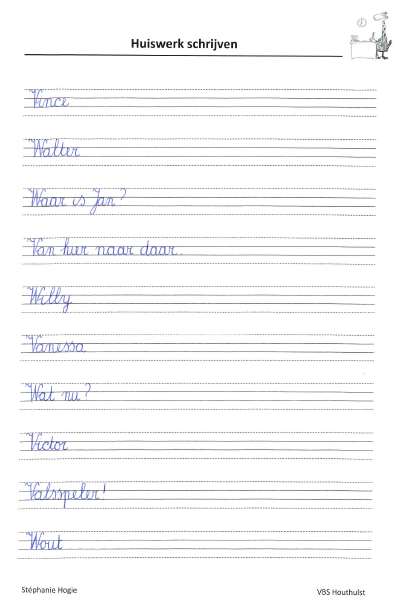 Huiswerk schrijven
Vince
Walter
Waar is Jan?
Van hier naar daar.
Willy
Vanessa
Wat nu?
Victor
Valsspeler!
Wout
Stéphanie Hogie
VBS Houthulst